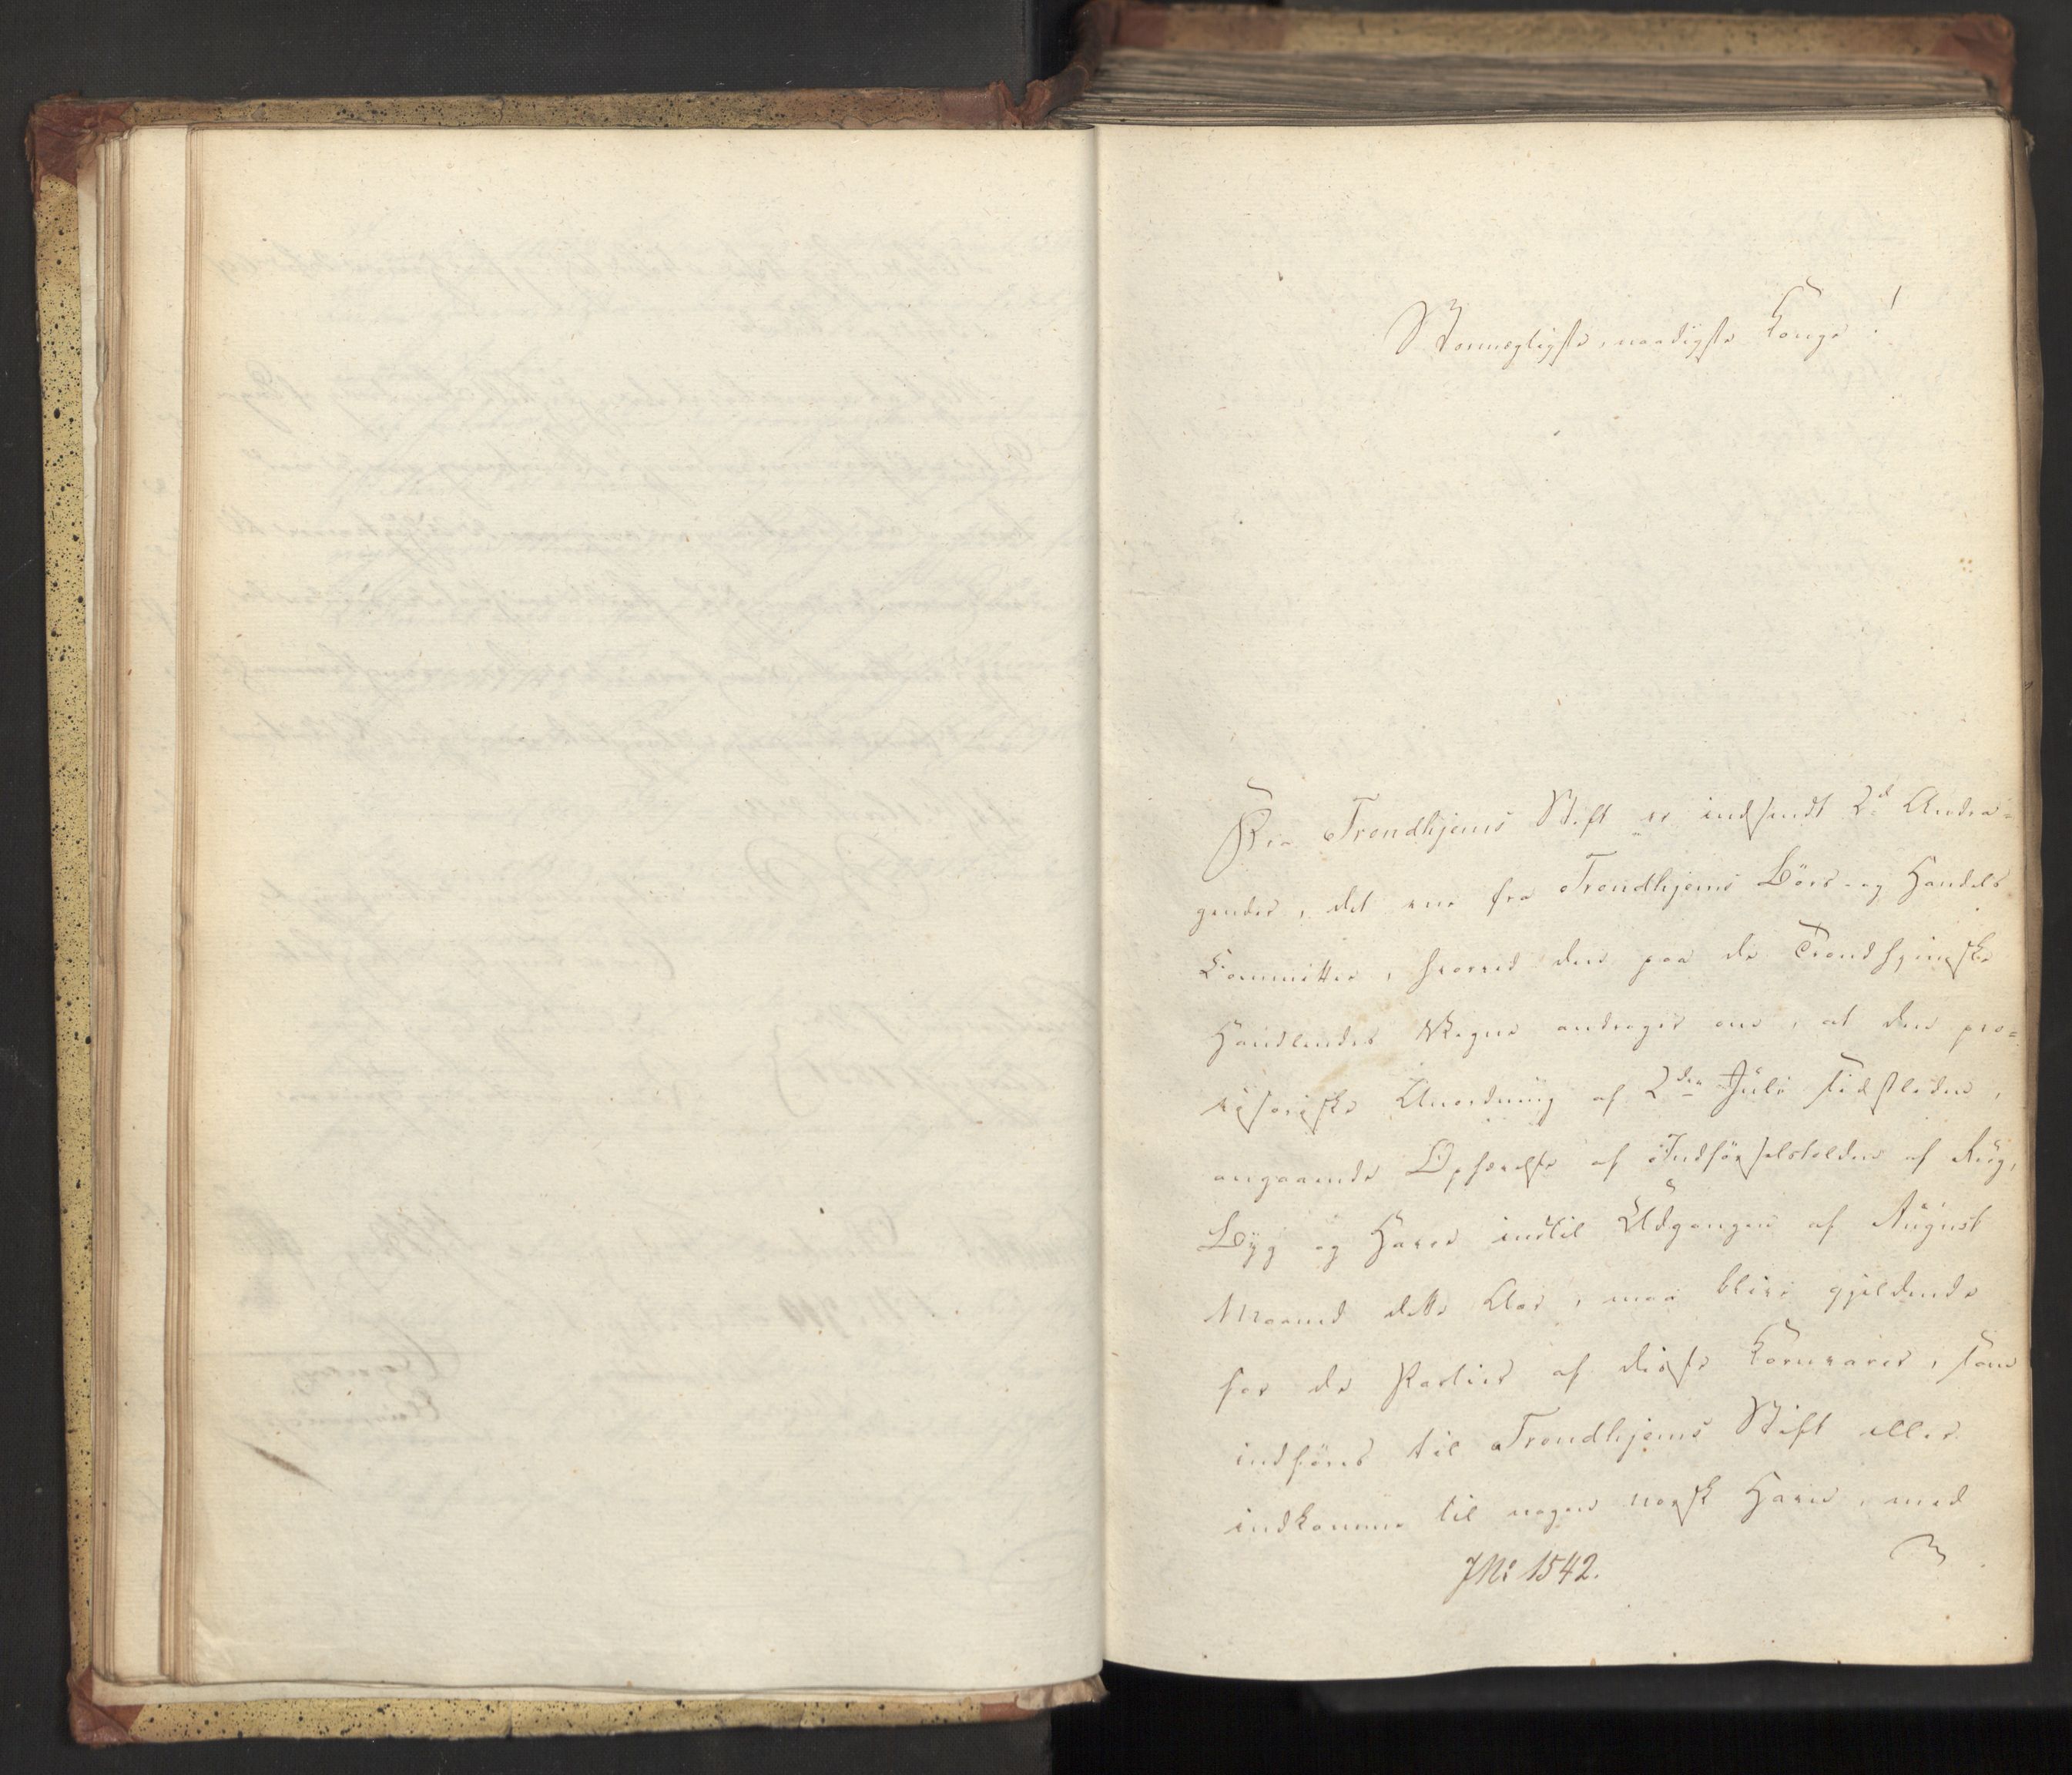 Stormægtigste, naadigste Konge!
Fra Trondhjems Stift er indsendt 2de Andra-
gender, det ene fra Trondhjems Börs- og Handels
Committee, hvorved den paa de Trondhjemske
Handlendes Vegne andrager om, at den pro-
visoriske Anordning af 2den Juli sidstleden,
angaaende Ophævelse af Indförselstolden af Rug,
Byg og Havre indtil Udgangen af August
Maaned dette Aar, maa blive gjeldende
for de Partier af disse Kornvarer, som
indföres til Trondhjems Stift eller
indkomme til nogen norsk Havn, med
JNo 1542.